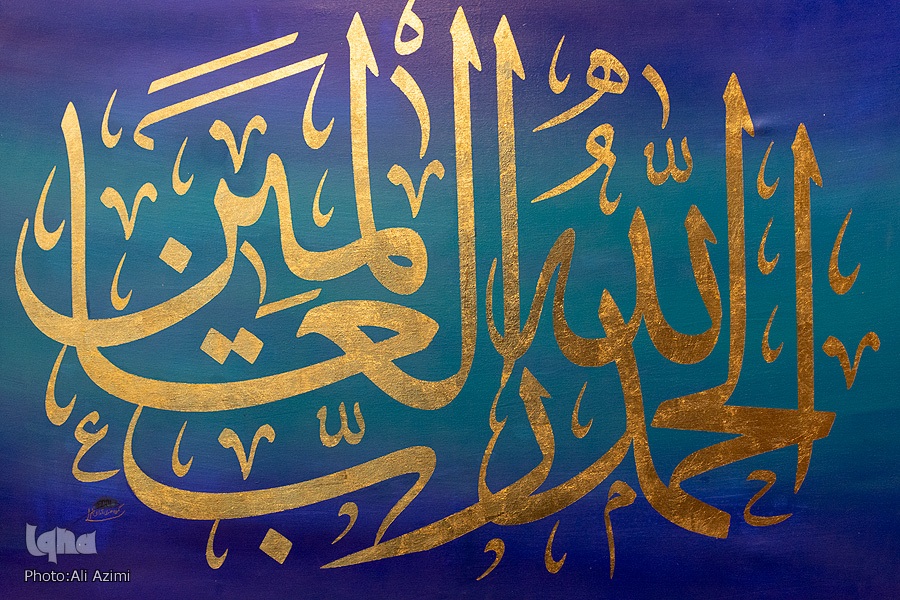 الحمد لله رب العالمين
Iqna
Photo:Ali Azimi